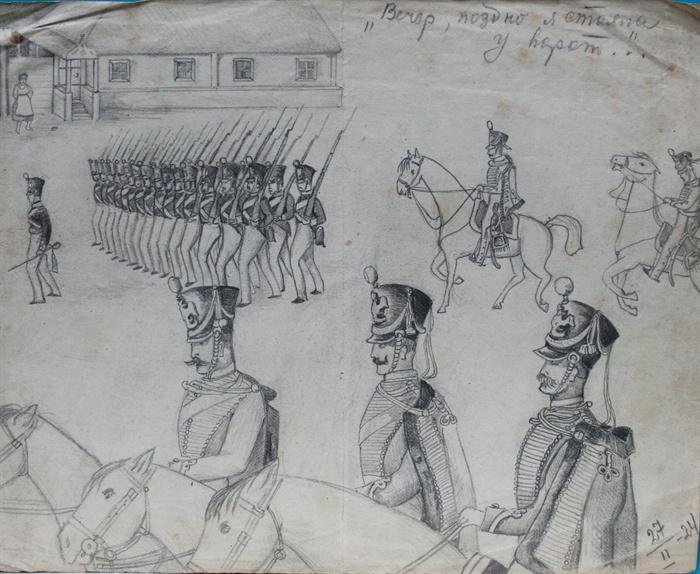 „Вечор, поздно я стояла
у ворот..."
27
II